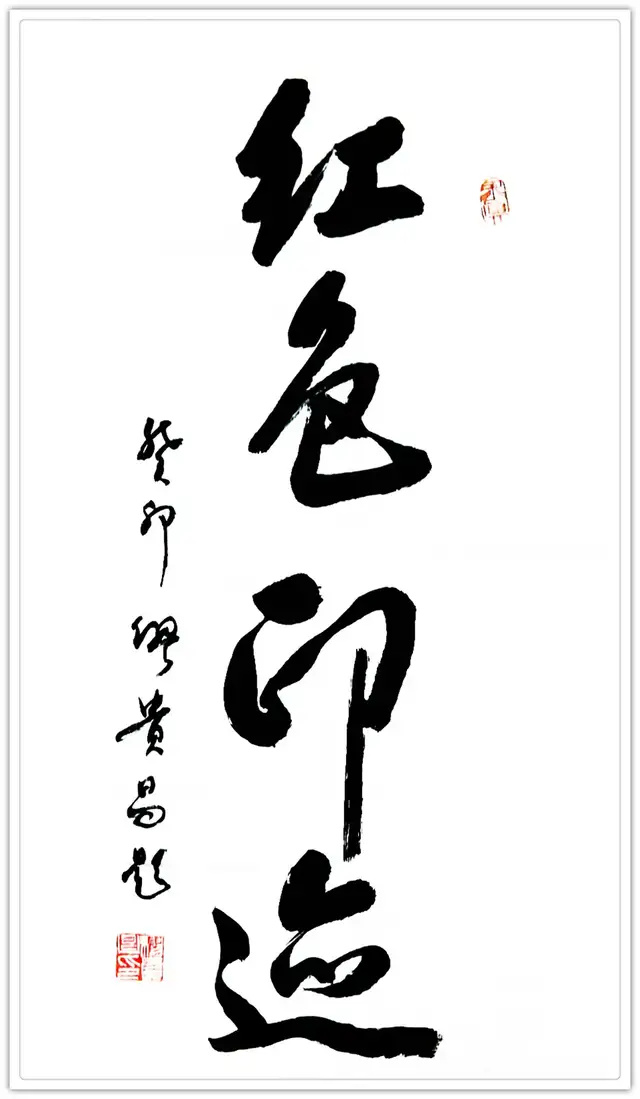 红色印迹
癸卯 缪贵昌题